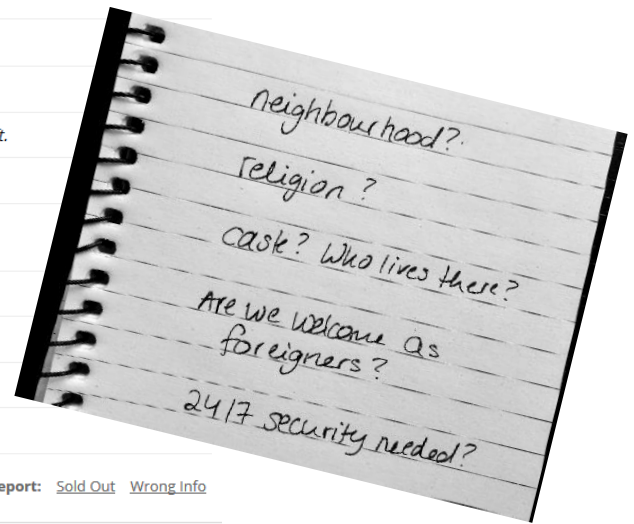 t.
neighbourhood?
religion?
caste? Who lives there?
Are we welcome as
foreigners?
24/7 security needed?
eport: Sold Out Wrong Info